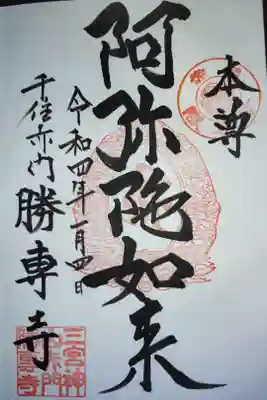 本尊
阿弥陀如来
令和四年一月四日
千住赤門
勝専寺
三宮神